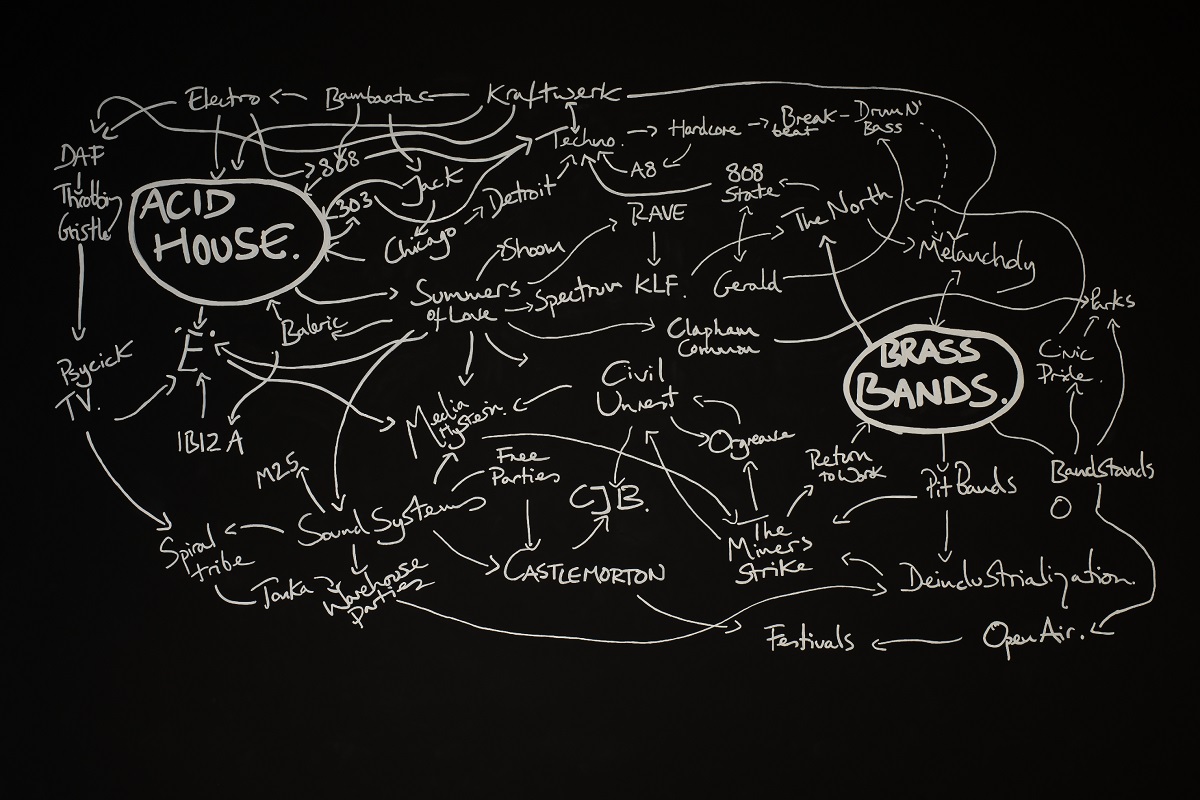 Electro
Bambaataa
Kraftwerk
DAF
Throbbing
Gristle
808
Techno.
Hardcore
Break
beat
Drum N'
Bass
A8
ACID
HOUSE.
303
Jack
Detroit
Chicago
808
State
The North
RAVE
Shoom
Melancholy
Summers
of Love
Spectrum
KLF.
Gerald
Parks
'E'.
Baleric
Clapham
Common
BRASS
BANDS.
Civic
Pride.
Psycick
TV.
IBIZA
Media
Hysteria.
Civil
Unrest
Orgreave
Return
to Work
Pit Bands
Bandstands
M25
Free
Parties
CJB.
Sound Systems
The
Miners
Strike
Spiral
tribe
Tonka
Warehouse
Parties
CASTLEMORTON
Deindustrialization.
Festivals
Open Air.